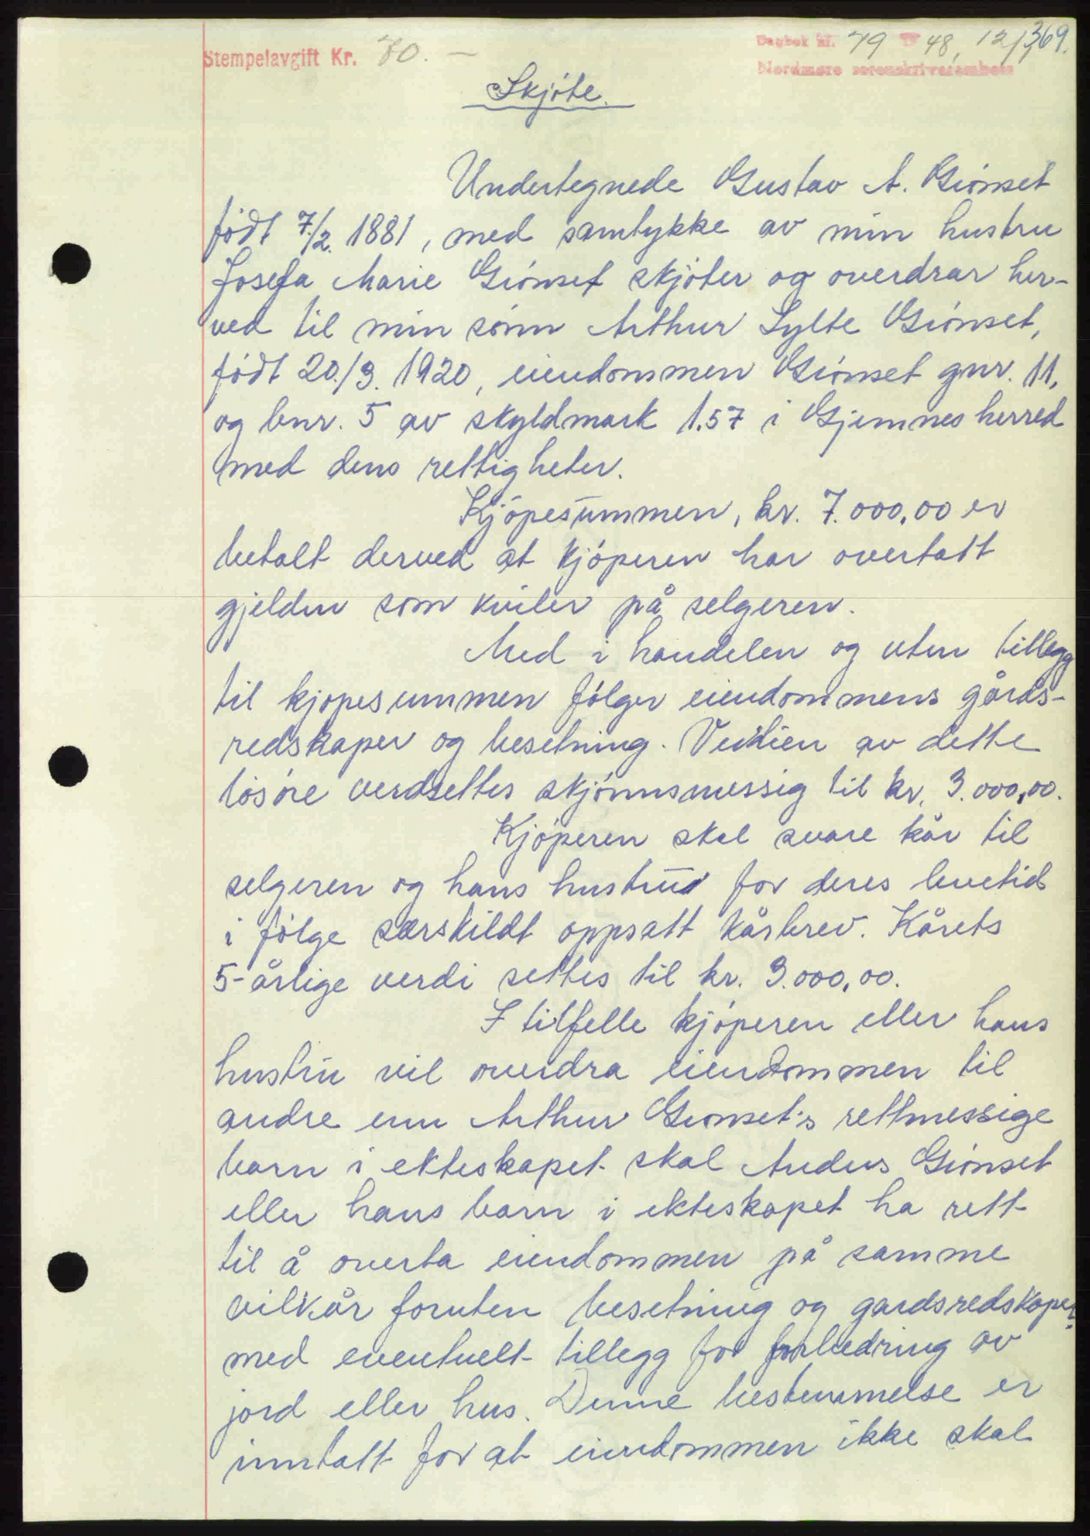 Stempelavgift Kr. 70. —
Dagbok nr. 79 48, 12/1 369.
Nordmøre sorenskriverembete
Skjöte.
Undertegnede Gustav A. Giönset
födt 7/2. 1881, med samtykke av min hustru
Josefa Marie Giönset skjöter og overdrar her-
ved til min sönn Arthur Sylte Giönset,
födt 20./3. 1920, eiendommen Giönset gnr. 11,
og bnr. 5 av skyldmark 1.57 i Gjemnes herred
med dens rettigheter.
Kjöpesummen, kr. 7.000,00 er
betalt derved at kjöperen har overtatt
gjelden som kviler på selgeren.
Med i handelen og uten tillegg
til kjöpesummen fölger eiendommens gårds-
redskaper og besetning. Verdien av dette
lösöre verdsettes skjönnsmessig til kr. 3.000,00.
Kjöperen skal svare kår til
selgeren og hans hustru for deres levetid
i fölge særskildt oppsatt kårbrev. Kårets
5-årlige verdi settes til kr. 3.000,00.
I tilfelle kjöperen eller hans
hustru vil overdra eiendommen til
andre enn Arthur Giönset's rettmessige
barn i ekteskapet skal Anders Giönset
eller hans barn i ekteskapet ha rett
til å overta eiendommen på samme
vilkår foruten besetning og gardsredskaper
med eventuelt tillegg for forbedring av
jord eller hus. Denne bestemmelse er
inntatt for at eiendommen ikke skal